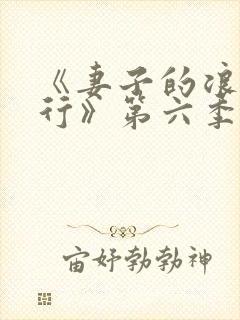 《妻子的浪
行》第六季
宙妤勃勃神